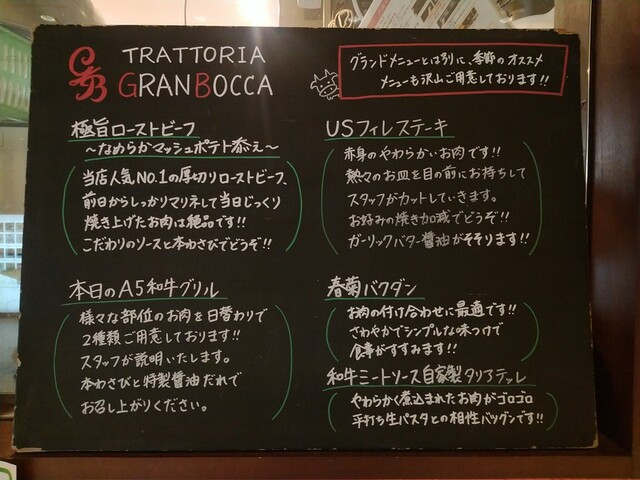 GB TRATTORIA
GRANBOCCA
グランドメニューとは別に、季節のオススメ
メニューも沢山ご用意しております!!
極旨ローストビーフ
〜なめらかマッシュポテト添え〜
当店人気NO.1の厚切りローストビーフ、
前日からしっかりマリネして当日じっくり
焼き上げたお肉は絶品です!!
こだわりのソースと本わさびでどうぞ!!
USフィレステーキ
赤身のやわらかいお肉です!!
熱々のお皿を目の前にお持ちして
スタッフがカットしていきます。
お好みの焼き加減でどうぞ!!
ガーリックバター醤油がそそります!!
本日のA5和牛グリル
様々な部位のお肉を日替わりで
2種類ご用意しております!!
スタッフが説明いたします。
本わさびと特製醤油だれで
お召し上がりください。
春菊バクダン
お肉の付け合わせに最適です!!
さわやかでシンプルな味つけで
食事がすすみます!!
和牛ミートソース自家製タリアテッレ
やわらかく煮込まれたお肉がゴロゴロ
平打ち生パスタとの相性バツグンです!!